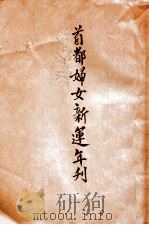 首都婦女新運年刊
http://www.mtoou.info